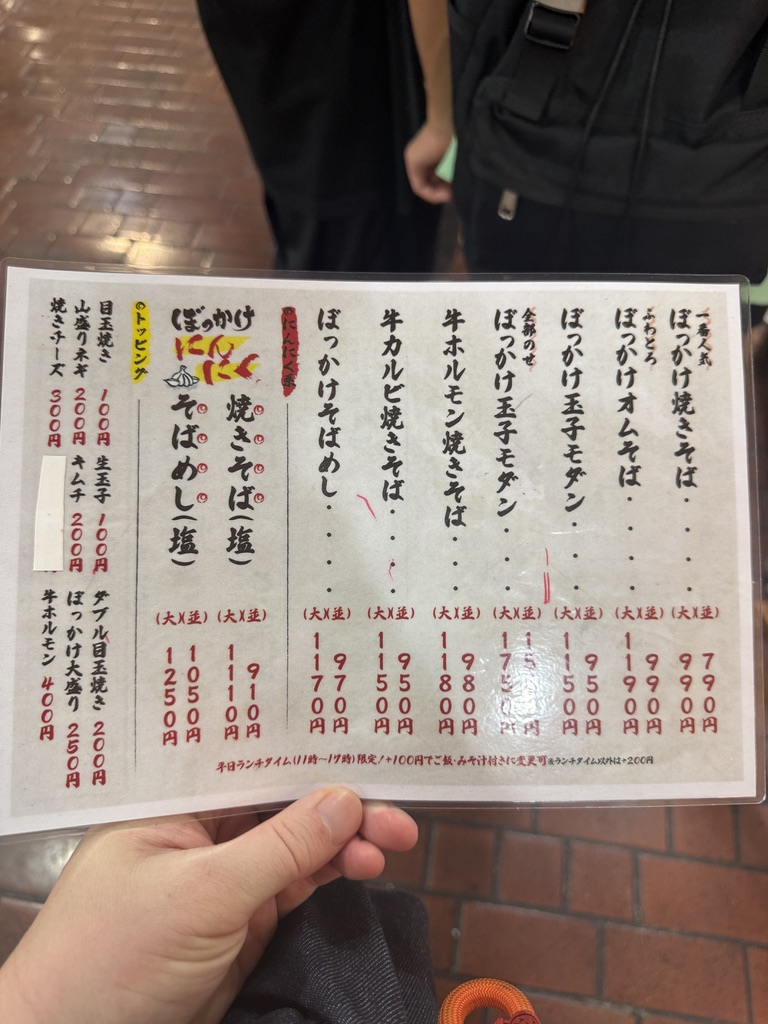 一番人気
ぼっかけ焼きそば・・・・
(大)(並)
790円
990円
ふわとろ
ぼっかけオムそば・・・・
(大)(並)
990円
1190円
ぼっかけ玉子モダン・・・
(大)(並)
950円
1150円
全部のせ
ぼっかけ玉子モダン・・・
(大)(並)
1750円
牛ホルモン焼きそば・・・
(大)(並)
980円
1180円
牛カルビ焼きそば・・・・
(大)(並)
950円
1150円
ぼっかけそばめし・・・・
(大)(並)
970円
1170円
のにんにく系
ぼっかけ
焼きそば(塩)
(大)(並)
910円
1110円
そばめし(塩)
(大)(並)
1050円
1250円
トッピング
目玉焼き 100円
生玉子 100円
ダブル目玉焼き 200円
山盛りネギ 200円
キムチ 200円
ぼっかけ大盛り 250円
焼きチーズ 300円
牛ホルモン 400円
平日ランチタイム(11時～17時)限定!+100円でご飯・みそ汁付きに変更可※ランチタイム以外は+200円